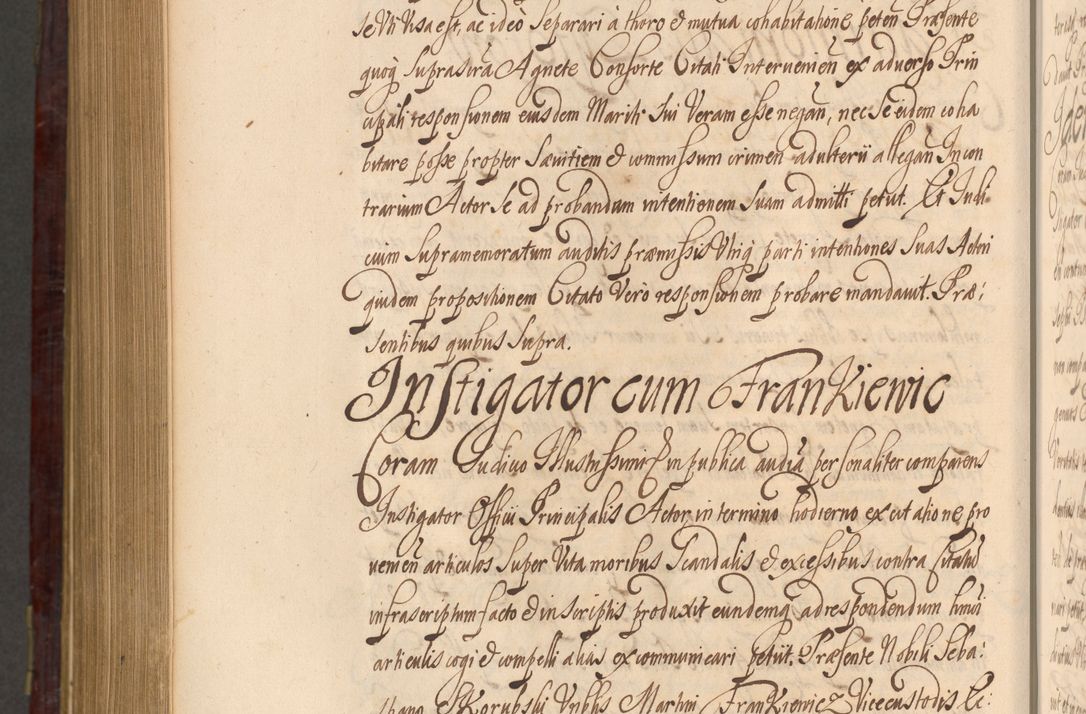 se Vti Visa est, ac ideò Separari à thoro & mutua cohabitatione peten̄ Præsente
quoq̧ suprascra Agnete Consorte Citati Intervenien̄ ex adverso Prin
cipali responsionem eiusdem Mariti sui Veram esse negan̄, nec se eidem coha
bitare posse propter Sævitiem & commissum crimen adulterii allegan̄ In con
trarium Actor se ad probandum intentionem suam admitti petiit. Et Iudi-
cium supramemoratum auditis præmissis Vtriq̧ parti intentiones suas Actori
quidem propositionem Citato Verò responsionem probare mandavit. Præ:
sentibus quibus supra.
Instigator cum Frankiewic
Coram Iudicio Illustrissimi in publica audiā personaliter comparens
Instigator Officii Principalis Actor in termino hodierno ex citatione pro
venien̄ articulos super Vita moribus Scandalis & excessibus contra Citatū
infrascriptum facto & in scriptis produxit eundemq̧ ad respondendum hmōi
articulis cogi & compelli aliàs excommunicari petiit. Præsente Nobili Seba:
stiano Skorubski Nribus Martini Frankiewicz Vicecustodis Ec: